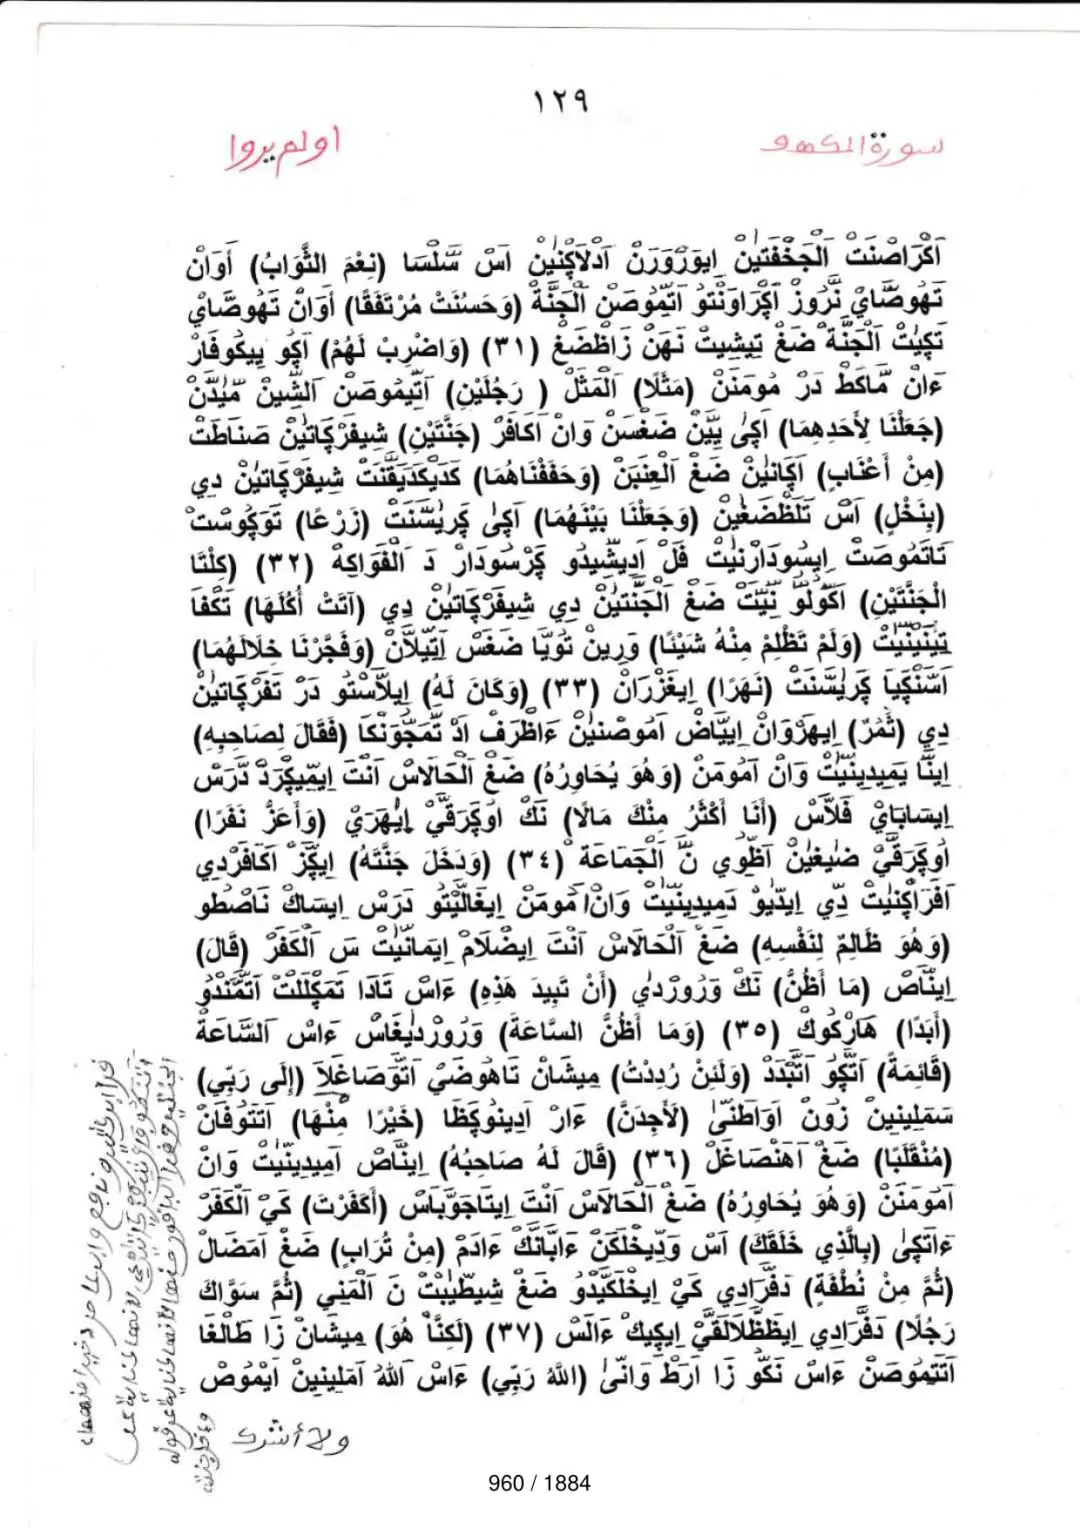 ١٢٩
سورة الكهف
اولم يروا
اَكْرَاضْنَتْ اَلْجَخْفَتَيْنْ اِيوَرْوَرَنْ اَدْلَاكَنَيْنْ اَسْ سَّلْسَا (نِعْمَ الثَّوَابُ) أَوَانْ
تَهُوصَّايْ نَّرُوزْ اَكَّرَاوَنْتُو اَتَّمُوصَنْ اَلْجَنَّةْ (وَحَسُنَتْ مُرْتَفَقًا) أَوَانْ تَهُوصَّايْ
تَكِيَتْ اَلْجَنَّةْ ضَغْ تِيشِيتْ نَهَنْ زَاظْضَغْ (٣١) (وَاضْرِبْ لَهُمْ) اَكُو يِيكُوفَارْ
ءَانْ مَّاكَطْ دَرْ مُومَنَنْ (مَثَلًا) اَلْمَثَلْ ( رَجُلَيْنِ) اَتِّيمُوصَنْ اَلشِّينْ مَّيْدَّنْ
(جَعَلْنَا لِأَحَدِهِمَا) اَكَىٰ يِيَّنْ ضَغْسَنْ وَانْ اَكَافَرْ (جَنَّتَيْنِ) شِيفَرْكَاتَيْنْ صَنَاطَتْ
(مِنْ أَعْنَابٍ) اَكَانَيْنْ ضَغْ اَلْعِنَبَنْ (وَحَفَفْنَاهُمَا) كَدَيْكَدَيَقَّنَتْ شِيفَرْكَاتَيْنْ دِي
(بِنَخْلٍ) اَسْ تَلَظْضَغَيْنْ (وَجَعَلْنَا بَيْنَهُمَا) اَكَىٰ كَرِيسَّنَتْ (زَرْعًا) تَوَكُوسْتْ
تَاتَمُوصَتْ اِيسُودَارْنِيتْ فَلْ اَدِيشِّيدُو كَرْسُودَارْ دَ اَلْفَوَاكِهْ (٣٢) (كِلْتَا
الْجَنَّتَيْنِ) اَكُولُّو نِّيَتْ ضَغْ اَلْجَنَّتَيْنْ دِي شِيفَرْكَاتَيْنْ دِي (آتَتْ أُكُلَهَا) تَكْفَا
تِينَيْنِيتْ (وَلَمْ تَظْلِمْ مِنْهُ شَيْئًا) وَرِينْ تُويَّا ضَغْسْ اَتِّيلَانْ (وَفَجَّرْنَا خِلَالَهُمَا)
اَسَّنْكِيَا كَرِيسَّنَتْ (نَهَرًا) اِيغَزْرَانْ (٣٣) (وَكَانَ لَهُ) اِيلَاسْتُو دَرْ تَفَرْكَاتَيْنْ
دِي (ثَمَرٌ) اِيهَرْوَانْ اِييَّاضْ اَمُوصْنَيْنْ ءَاظْرَفْ اَدْ تَمَجُّونَكَا (فَقَالَ لِصَاحِبِهِ)
اِينَّا يَمِيدِينِيتْ وَانْ اَمُومَنْ (وَهُوَ يُحَاوِرُهُ) ضَغْ اَلْحَالَاسْ اَنْتَ اِيمِّيكَرَدْ دَّرَسْ
اِيسَابَايْ فَلَّاسْ (أَنَا أَكْثَرُ مِنْكَ مَالًا) نَكْ اُوكَرَقَّيْ اِيْهَرَيْ (وَأَعَزُّ نَفَرًا)
اُوكَرَقَّيْ ضَيْغَيْنْ اَظْوِي نَّ اَلْجَمَاعَةْ (٣٤) (وَدَخَلَ جَنَّتَهُ) اِيكَّزْ اَكَافَرْدِي
اَفَرَاكَنِيتْ دِي اِيدِّيوْ دَمِيدِينِيتْ وَانْ اَمُومَنْ اِيغَالَيْتُو دَرَسْ اِيسَاكْ نَاصْطُو
(وَهُوَ ظَالِمٌ لِنَفْسِهِ) ضَغْ اَلْحَالَاسْ اَنْتَ اِيضْلَامْ اِيمَانَيْتْ سَ اَلْكَفَرْ (قَالَ)
اِينَّاصْ (مَا أَظُنُّ) نَكْ وَرُورْدَيْ (أَنْ تَبِيدَ هَذِهِ) ءَاسْ تَادَا تَمَكَلَّتْ اَتَّمَّنْدُو
(أَبَدًا) هَارْكُوكْ (٣٥) (وَمَا أَظُنُّ السَّاعَةَ) وَرُورْدَيْغَاسْ ءَاسْ اَلسَّاعَةْ
(قَائِمَةً) اَتَّكُو اَتَّبْدَدْ (وَلَئِنْ رُدِدْتُ) مِيشَانْ تَاهُوضَيْ اَتُّوصَاغَلَا (إِلَى رَبِّي)
سَمَلِينِينْ زُونْ اَوَاطَنَّىٰ (لَأَجِدَنَّ) ءَارْ اَدِينُوكَظَا (خَيْرًا مِنْهَا) اَتَتُوفَانْ
(مُنْقَلَبًا) ضَغْ اَهَنْصَاغَلْ (٣٦) (قَالَ لَهُ صَاحِبُهُ) اِينَّاصْ اَمِيدِينِيتْ وَانْ
اَمُومَنَنْ (وَهُوَ يُحَاوِرُهُ) ضَغْ اَلْحَالَاسْ اَنْتَ اِيتَاجَوَّبَاسْ (أَكَفَرْتَ) كَيْ اَلْكَفَرْ
ءَاتَكَىٰ (بِالَّذِي خَلَقَكَ) اَسْ وَدِّيخْلَكَنْ ءَابَّانَكْ ءَادَمْ (مِنْ تُرَابٍ) ضَغْ اَمَضَالْ
(ثُمَّ مِنْ نُطْفَةٍ) دَفَّرَادِي كَيْ اِيخْلَكَيْدُو ضَغْ شِيطِّيبْتْ نَ اَلْمَنِي (ثُمَّ سَوَّاكَ
رَجُلًا) دَفَّرَادِي اِيظَظْلَالَقَّيْ اِيكَيكْ ءَالَسْ (٣٧) (لَكِنَّا هُوَ) مِيشَانْ زَا طَالْغَا
اَتَّتَمُوصَنْ ءَاسْ نَكُّو زَا اَرَطْ وَانَّىٰ (اللَّهُ رَبِّي) ءَاسْ اَللهُ اَمَلِينِينْ اَيْمُوصْ
ولا أشرك
960 / 1884